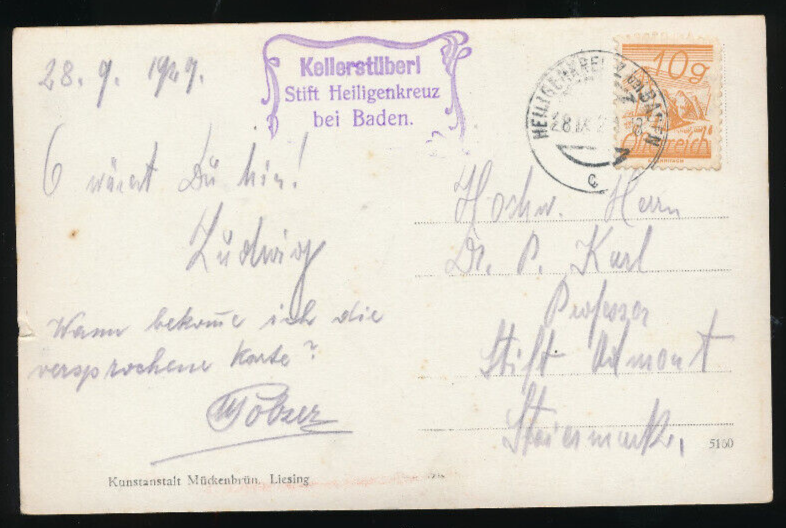 28. 9. 1929.
Kellerstüberl
Stift Heiligenkreuz
bei Baden.
HEILIGENKREUZ BEI BADEN
28 IX 2
10g
Österreich
O wärest Du hier!
Ludwig
Wann bekom̄e ich die
versprochene Karte?
Hochw. Herrn
Dr. P. Karl
Professor
Stift Admont
Steiermark.
5160
Kunstanstalt Mückenbrün, Liesing